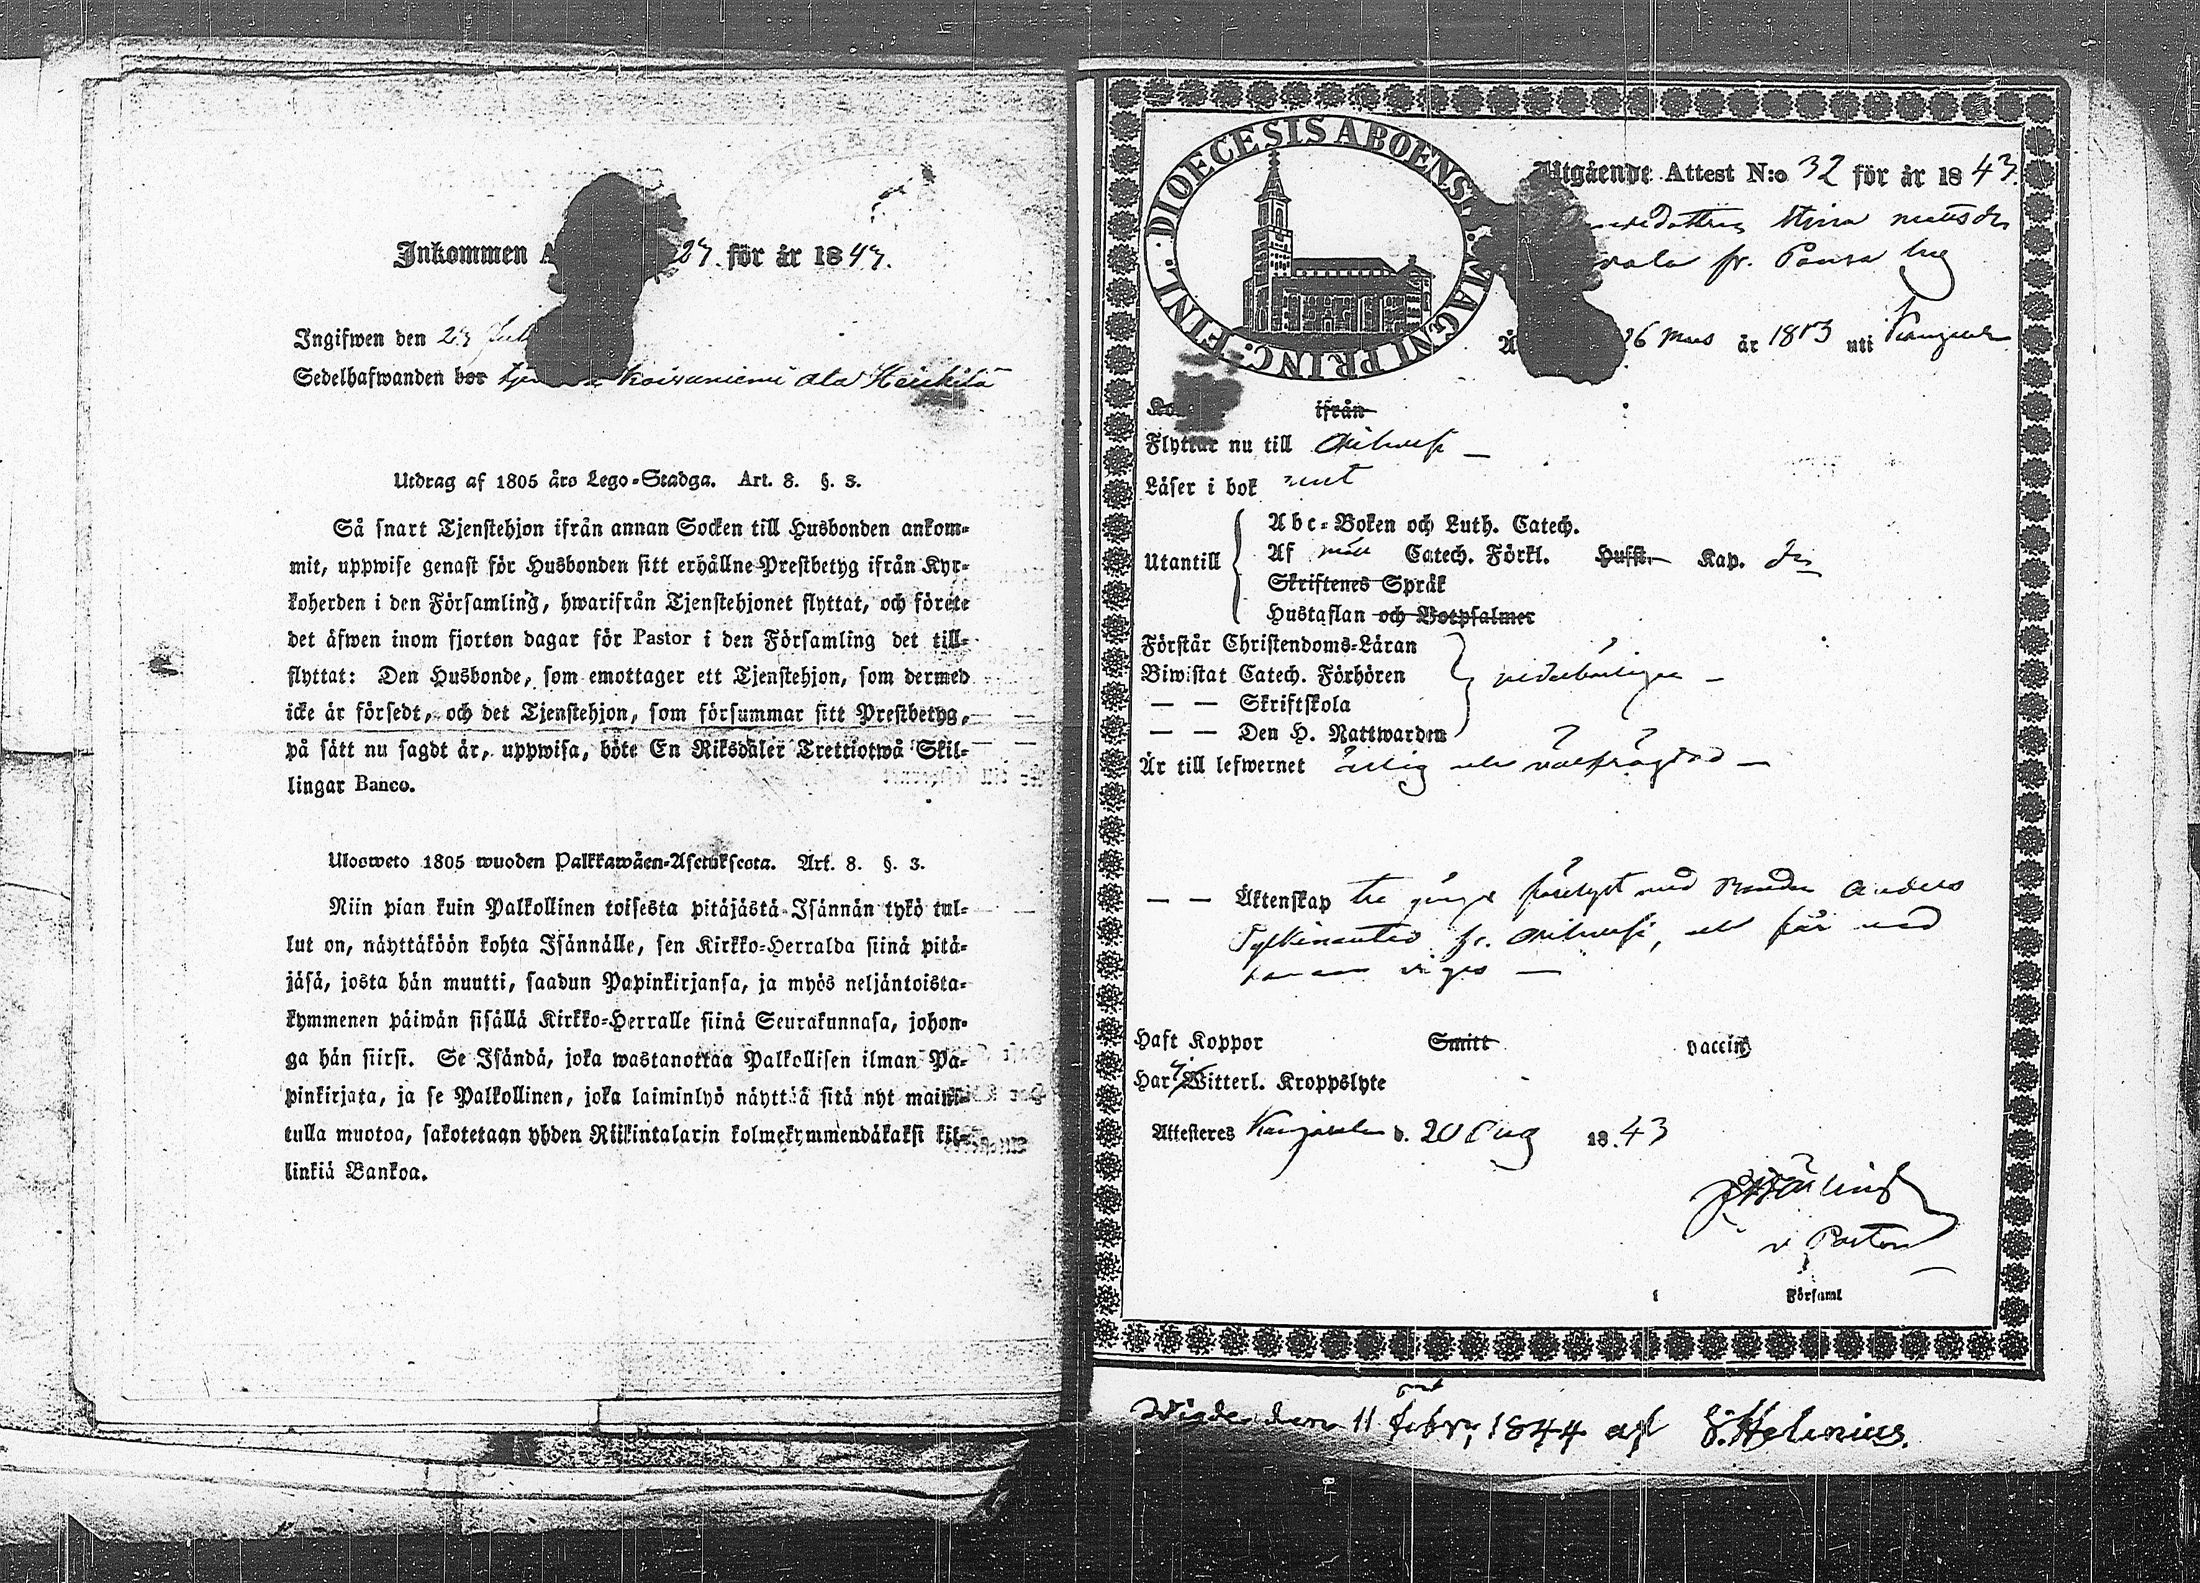 Inkommen A 23 för år 1843.
Ingifwen den 23
Sedelhafwanden bor
Utdrag af 1805 års Lego-Stadga. Art. 8. §. 3.
Så snart Tjenstehjon ifrån annan Socken till Husbonden ankom-
mit, uppwise genast för Husbonden sitt erhållne Prestbetyg ifrån Kyr-
koherden i den Församling, hwarifrån Tjenstehjonet flyttat, och förete
det äfwen inom fjorton dagar för Pastor i den Församling det till-
flyttat: Den Husbonde, som emottager ett Tjenstehjon, som dermed
icke är försedt, och det Tjenstehjon, som försummar sitt Prestbetyg,
på sätt nu sagdt är, uppwisa, böte En Riksdaler Trettiotwå Skil-
lingar Banco.
Ulosweto 1805 wuoden Palkkawäen-Asetuksesta. Art. 8. §. 3.
Niin pian kuin Palkollinen toisesta pitäjästä Isännän tykö tul-
lut on, näyttäköön kohta Isännälle, sen Kirkko-Herralda siinä pitä-
jäsä, josta hän muutti, saadun Papinkirjansa, ja myös neljäntoista-
kymmenen päiwän sisällä Kirkko-Herralle siinä Seurakunnasa, johon-
ga hän siirsi. Se Isändä, joka wastanottaa Palkollisen ilman Pa-
pinkirjata, ja se Palkollinen, joka laiminlyö näyttää sitä nyt maini-
tulla muotoa, sakotetaan yhden Riikintalarin kolmekymmendäkaksi kil-
linkiä Bankoa.
DIOECESIS ABOENS. MAGNI PRINC. FINL.
Utgående Attest N:o 32 för år 1843.
Stina Matsdr
fr. Pausa
26 Mars år 1813 uti
ifrån
Flyttar nu till
Läser i bok
Utantill
Abc-Boken och Luth. Catech.
Af Catech. Förkl. Hussi. Kap.
Skriftenes Språk
Hustaflan och Botpsalmer
Förstår Christendoms-Läran
Biwistat Catech. Förhören
— — Skriftskola
— — Den H. Nattwarden
Är till lefwernet ärlig och välfrägdad —
— — Äktenskap tre gånger förelyst med Anders
fr. och får med
viges —
Haft Koppor Smitt vaccin
Har Witterl. Kroppslyte
Attesteres d. 20 Aug 1843
v Pastor
i Församl
Wigde den 11 Febr. 1844 af Helenius.